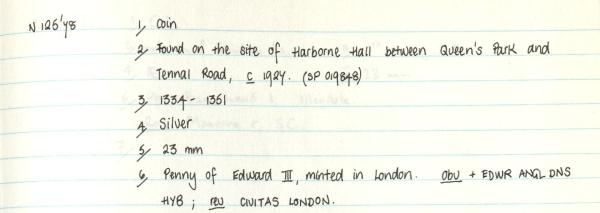 N 126'48 1, Coin
2, Found on the site of Harborne Hall between Queen's Park and
Tennal Road, c 1924. (SP 019848)
3, 1334 - 1351
4, Silver
5, 23 mm
6, Penny of Edward III, minted in London. obv + EDWR ANGL DNS
HYB ; rev CIVITAS LONDON.